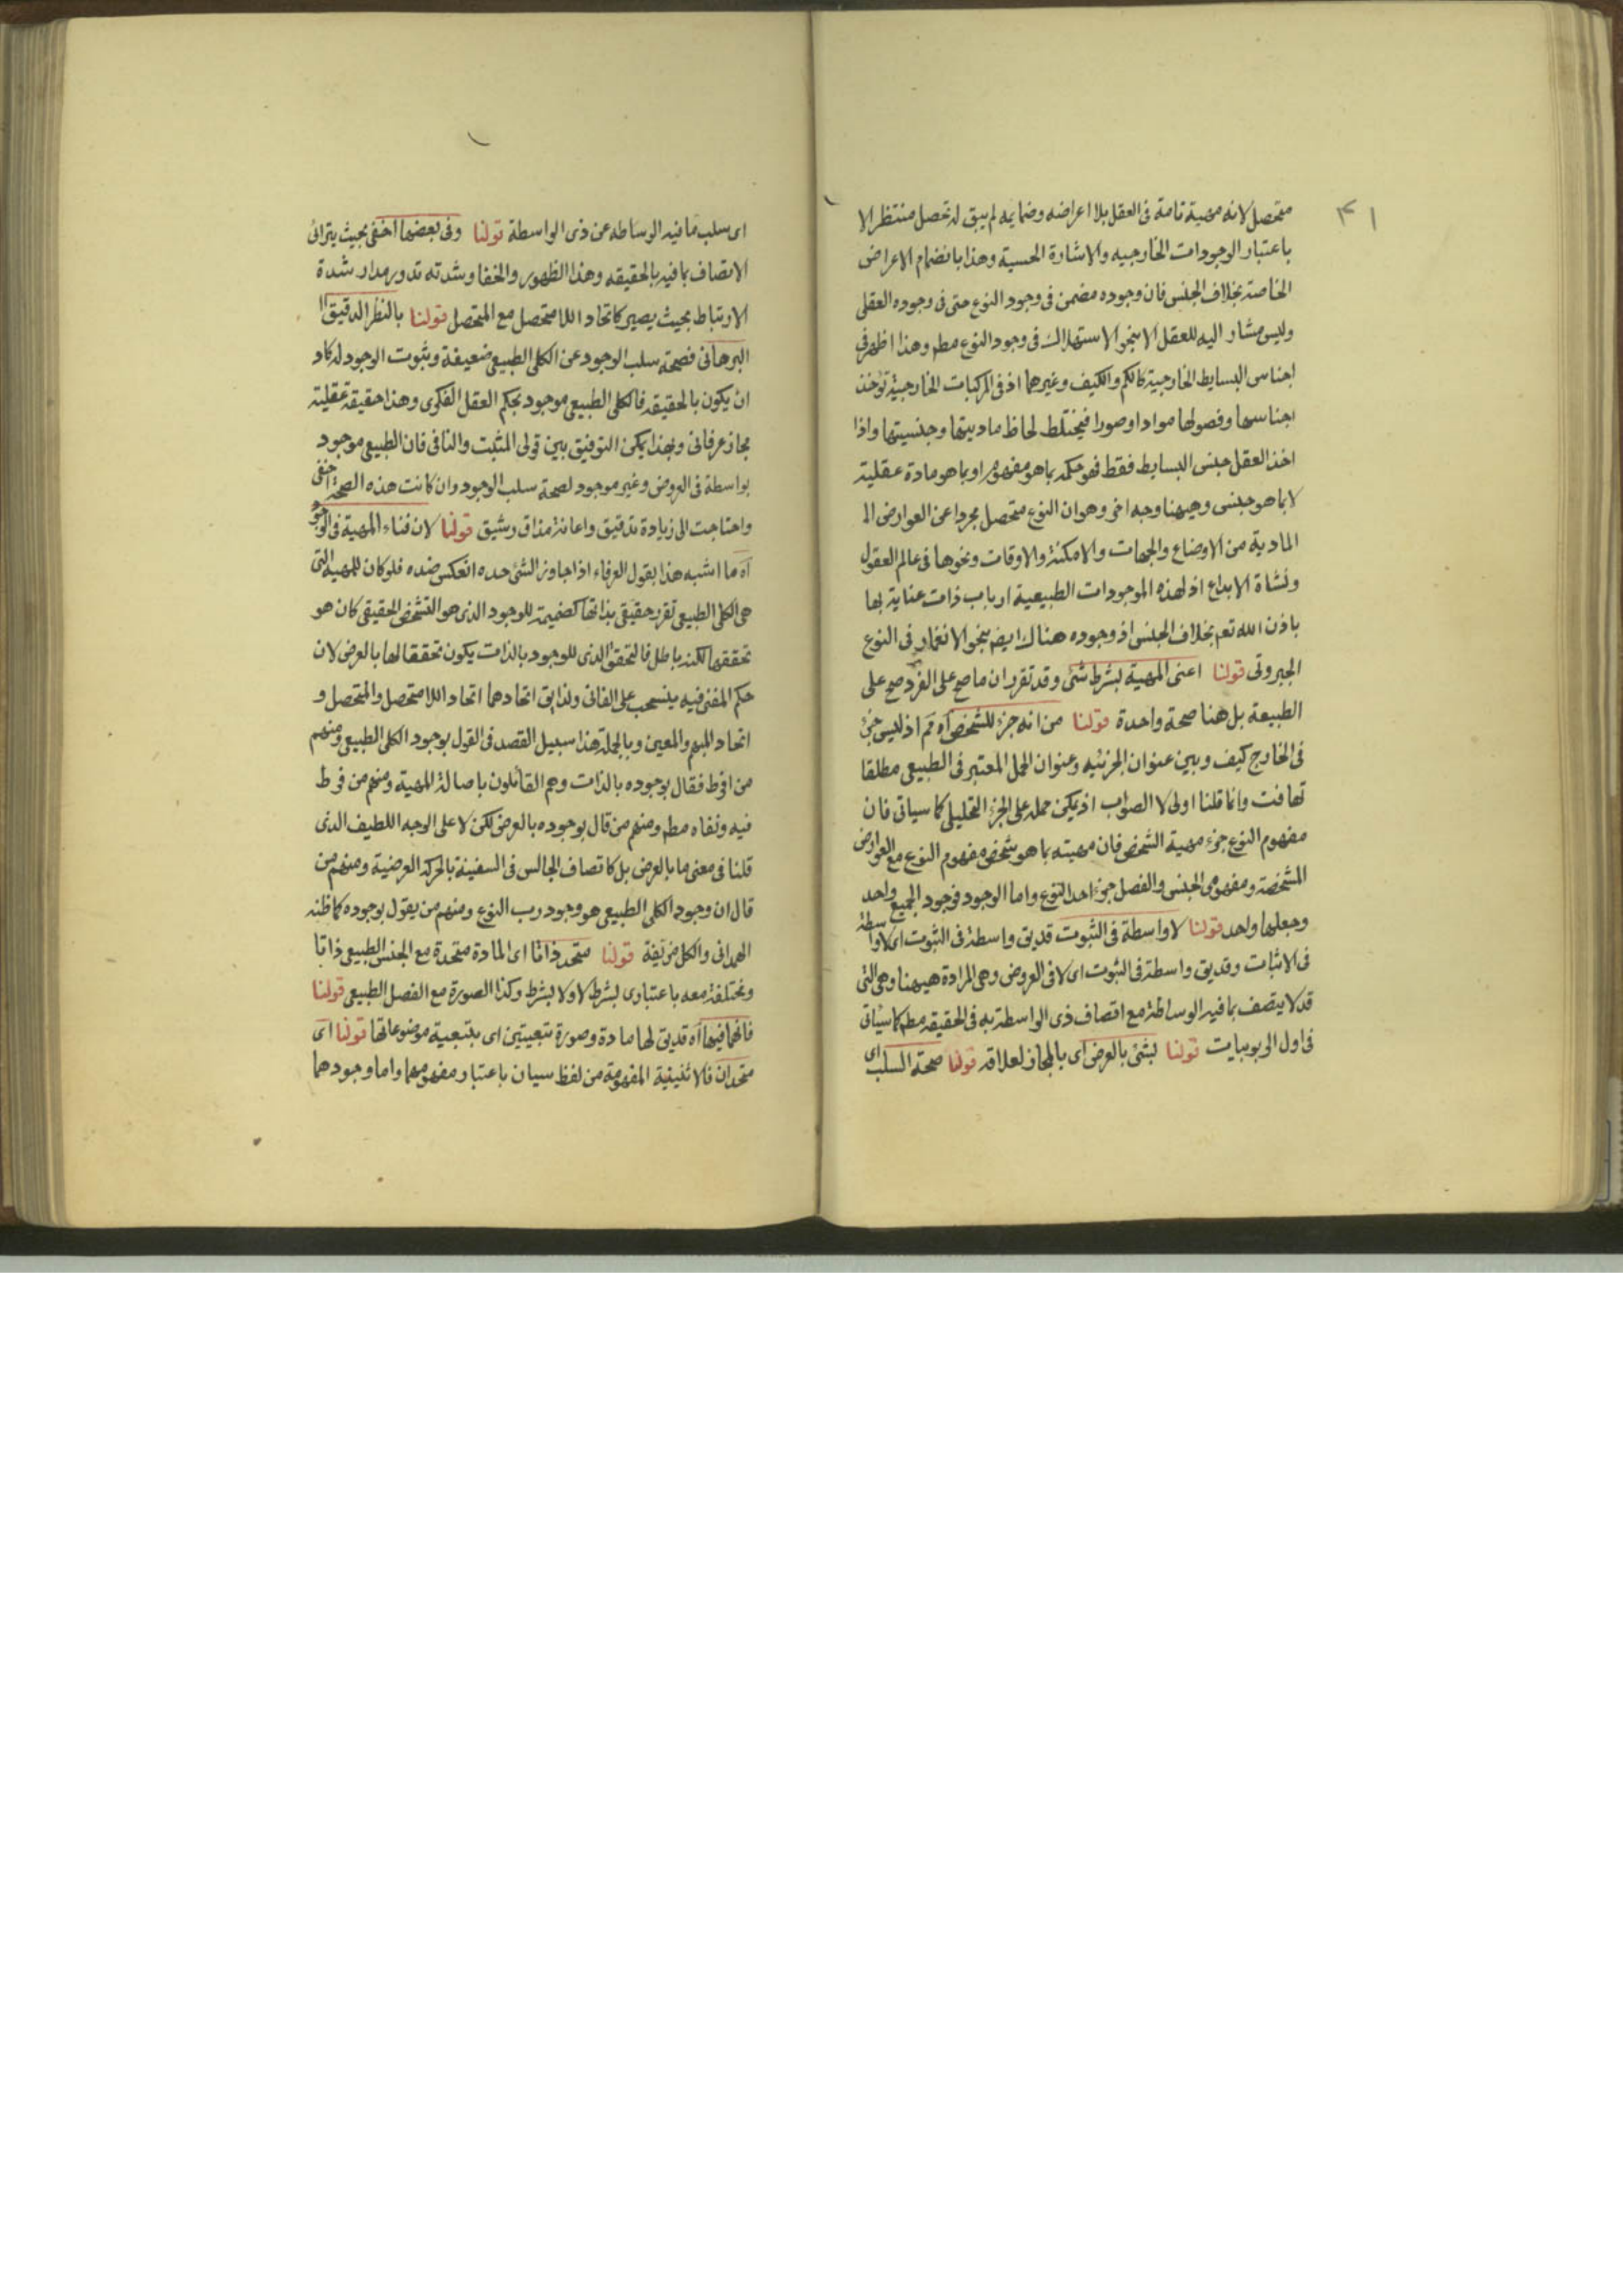 ۴۱
متحصل لانه مهية تامة فى العقل بلا اعراضه وضمايمه لم يبق له تحصل منتظر الا
باعتبار الوجودات الخارجيه والاشارة الحسية وهذا بانضمام الاعراض
الخاصة بخلاف الجنس فان وجوده مضمن فى وجود النوع حتى فى وجوده العقلى
وليس مشار اليه للعقل الا بنحو الاستهلاك فى وجود النوع مطم وهذا اظهر فى
اجناس البسايط الخارجية كالكم والكيف وغيرهما اذ فى المركبات الخارجية تؤخذ
اجناسها وفصولها مواد او صورا فيختلط لحاظ ماديتها وجنسيتها واذا
اخذ العقل جنس البسايط فقط فهو حكمه بما هو مفهوم او بما هو مادة عقلية
لا بما هو جنس وهيهنا وجه اخر وهو ان النوع متحصل مجردا عن العوارض ال
المادية من الاوضاع والجهات والامكنة والاوقات ونحوها فى عالم العقول
ونشاة الابداع اذ لهذه الموجودات الطبيعية ارباب ذات عناية بها
باذن الله تعم بخلاف الجنس اذ وجوده هناك ايض بنحو الانغمار فى النوع
الجبروتى قولنا اعنى المهية بشرط شئ وقد تقرر ان ما صح على الفرد صح على
الطبيعة بل هنا صحة واحدة قولنا من انه جزء للشخص آه ثم اذ ليس جزء
فى الخارج كيف وبين عنوان الجزئيه وعنوان الحمل المعتبر فى الطبيعى مطلقا
تهافت وانما قلنا اولى لا الصواب اذ يمكن حمله على الجزء التحليلى كما سياتى فان
مفهوم النوع جزء مهية الشخص فان مهيته بما هو شخص مفهوم النوع مع العوارض
المشخصة ومفهومى الجنس والفصل جزء احد النوع واما الوجود فوجود الجميع واحد
وجعلها واحد قولنا لا واسطة فى الثبوت قد يق واسطة فى الثبوت اى لا واسطة
فى الاثبات وقد يق واسطة فى الثبوت اى لا فى العروض وهى المرادة هيهنا وهى التى
قد لا يتصف بما فيه الوساطة مع اتصاف ذى الواسطة به فى الحقيقه مطم كما سياتى
فى اول الربوبيات قولنا لشئ بالعرض اى بالمجاز لعلاقه قولنا صحة السلب اى
اى سلب ما فيه الوساطه عن ذى الواسطة قولنا وفى بعضها اخفى بحيث يترائى
الاتصاف بما فيه بالحقيقه وهذا الظهور والخفا وشدته تدور مدار شدة
الارتباط بحيث يصير كاتحاد اللامتحصل مع المتحصل قولنا بالنظر الدقيق ال
البرهانى فصحة سلب الوجود عن الكلى الطبيعى ضعيفة وثبوت الوجود له كاد
ان يكون بالحقيقه فالكلى الطبيعى موجود بحكم العقل الفكرى وهذا حقيقة عقلية
مجاز عرفانى وبهذا يمكن التوفيق بين قولى المثبت والنافى فان الطبيعى موجود
بواسطة فى العروض وغير موجود لصحة سلب الوجود وان كانت هذه الصحة اخفى
واحتاجت الى زيادة تدقيق واعانة مذاق رشيق قولنا لان فناء المهية فى الوجود
آه ما اشبه هذا بقول العرفاء اذا جاوز الشئ حده انعكس ضده فلو كان للمهية التى
هى الكلى الطبيعى تقرر حقيقى بذاتها كضميمة للوجود الذى هو التشخص الحقيقى كان هو
تحققها لكنه باطل فالتحقق الذى للوجود بالذات يكون تحققا لها بالعرض لان
حكم المفنى فيه ينسحب على الفانى ولذا يق اتحادهما اتحاد اللامتحصل والمتحصل و
اتحاد المبهم والمعين وبالجملة هذا سبيل القصد فى القول بوجود الكلى الطبيعى ومنهم
من افرط فقال بوجوده بالذات وهم القائلون باصالة المهية ومنهم من فرط
فيه ونفاه مطم ومنهم من قال بوجوده بالعرض لكن لا على الوجه اللطيف الذى
قلنا فى معنى ما بالعرض بل كاتصاف الجالس فى السفينة بالحركة العرضية ومنهم من
قال ان وجود الكلى الطبيعى هو وجود رب النوع ومنهم من يقول بوجوده كما ظنه
الهمدانى والكل مزيفة قولنا متحد ذاتا اى المادة متحدة مع الجنس الطبيعى ذاتا
ومختلفة معه باعتبارى بشرط لا ولا بشرط وكذا الصورة مع الفصل الطبيعى قولنا
فانهما فيها آه قد يق لها مادة وصورة تبعيتين اى بتبعية موضوعاتها قولنا اى
متحدان فالاثنينية المفهومة من لفظ سيان باعتبار مفهومهما واما وجودهما